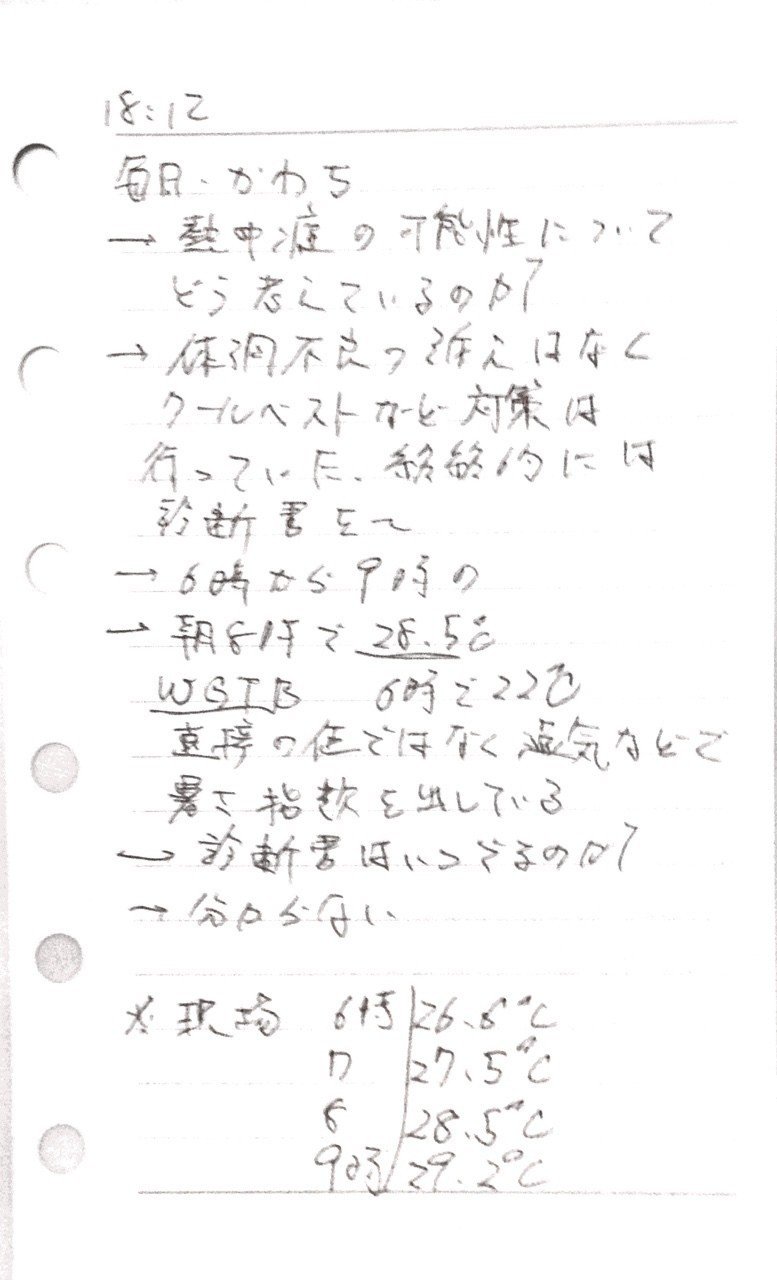 18:12
毎日・かわち
→ 熱中症の可能性について
どう考えているのか?
→ 体調不良の訴えはなく
クールベストなど対策は
行っていた、最終的には
診断書を〜
→ 6時から9時の
→ 朝8時で28.5℃
WGTB 6時で22℃
直接の値ではなく湿気などで
暑さ指数を出している
→ 診断書はいつでるのか?
→ 分からない
※現場 6時 26.6℃
7 27.5℃
8 28.5℃
9時 29.2℃